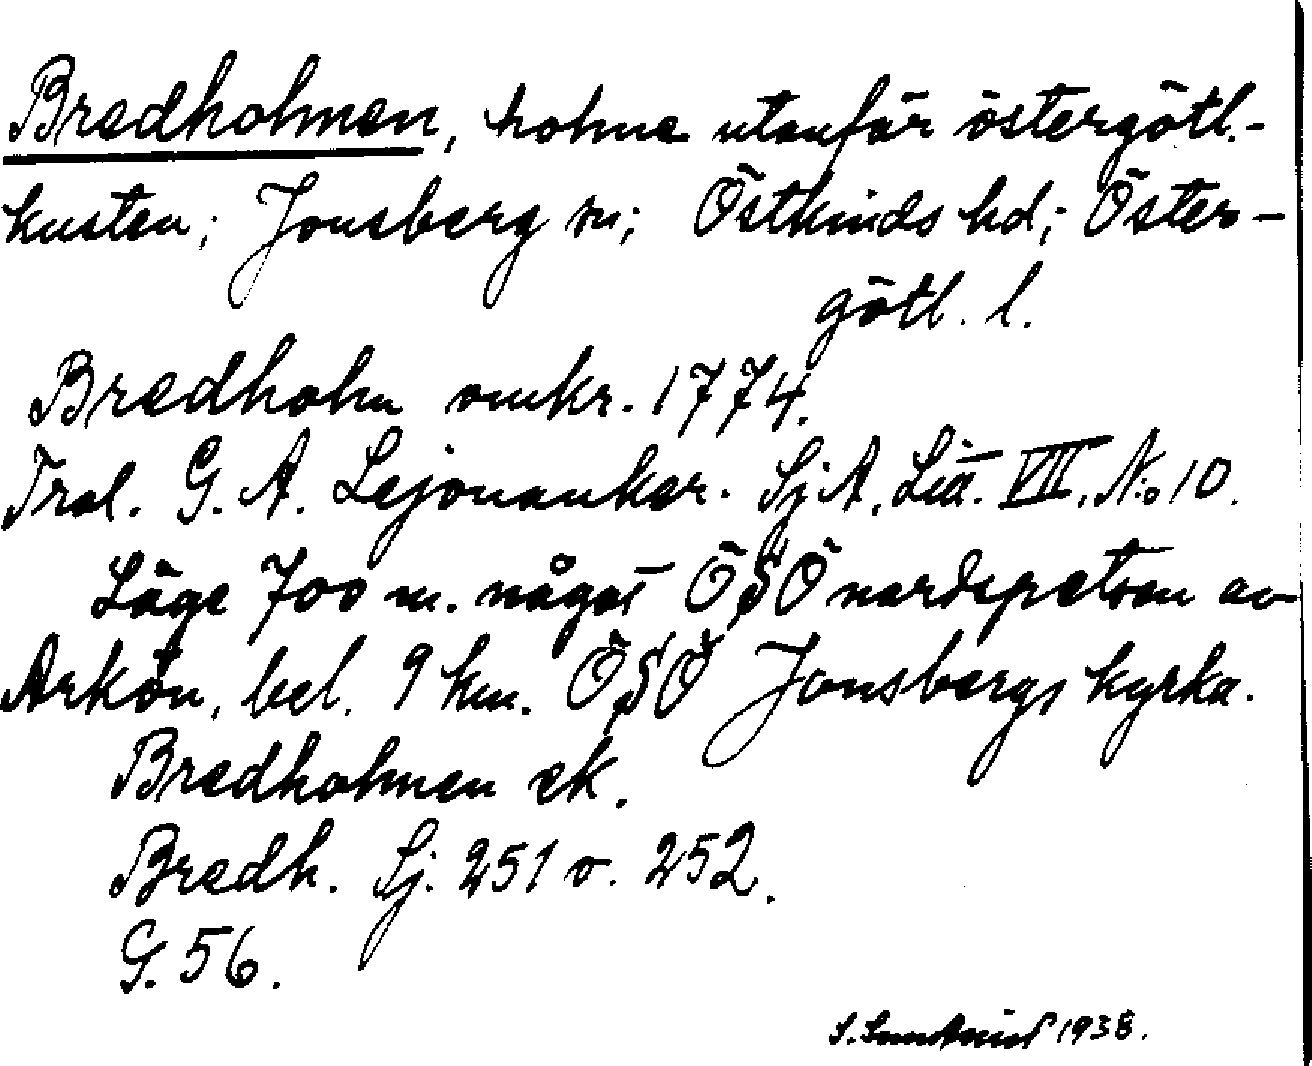 Bredholmen, holme utanför östergötl.-
kusten; Jonsberg sn; Östkinds hd; Öster-
götl. l.
Bredholm omkr. 1774.
Trol. G. A. Lejonankar. SjA, Litt. VII, No 10.
Läge 700 m. något ÖSÖ nordspetsen av
Arkön, bel. 9 km. ÖSÖ Jonsbergs kyrka.
Bredholmen ek.
Bredh. Sj. 251 o. 252.
G. 56.
S. 1938.